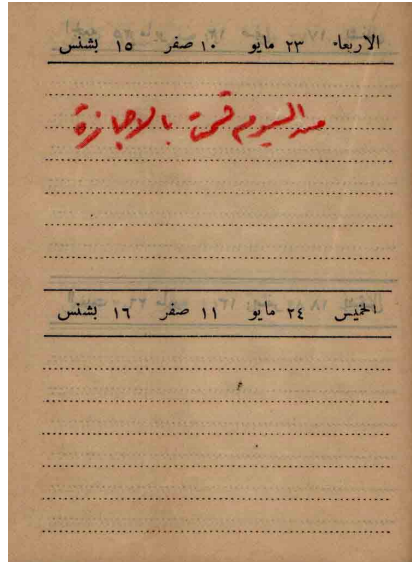 الاربعاء ٢٣ مايو ١٠ صفر ١٥ بشنس
من اليوم قمت بالاجازة
الخميس ٢٤ مايو ١١ صفر ١٦ بشنس